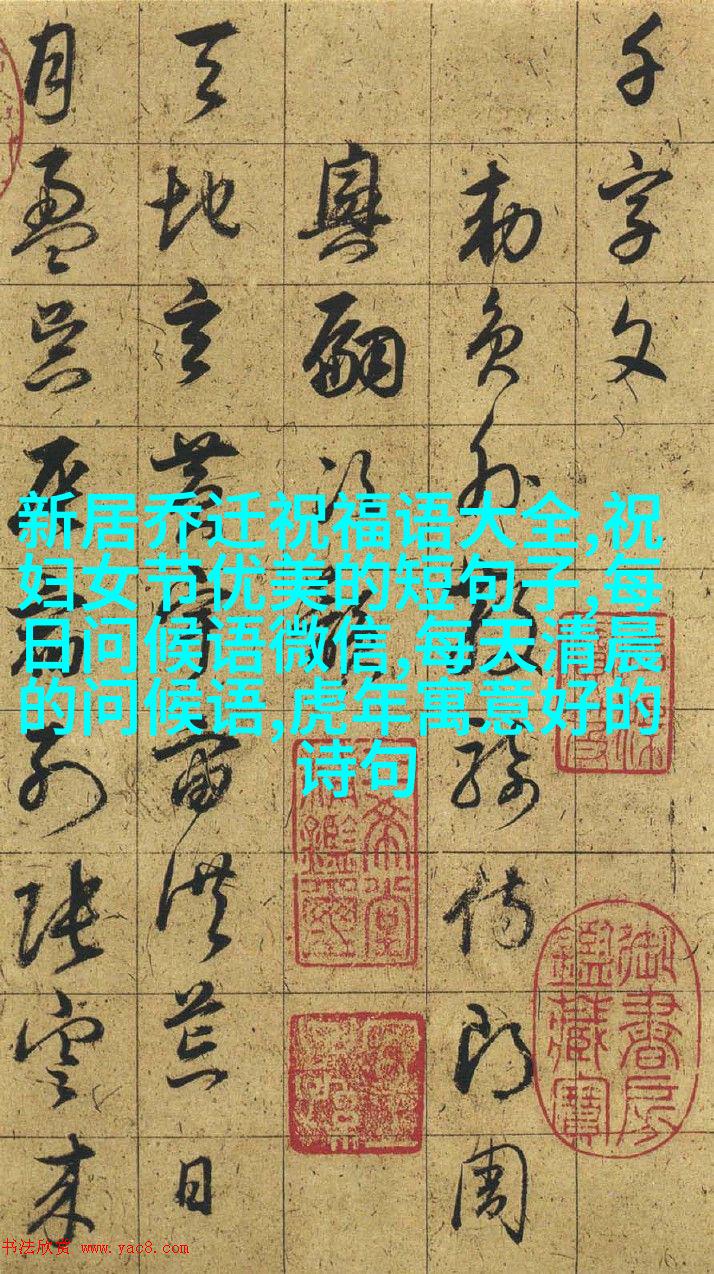 千字文
勅員外散騎侍郎周
興嗣次韻
天地玄黃宇宙洪荒日
月盈昃辰宿列張寒来
新居乔迁祝福语大全,祝
妇女节优美的短句子,每
日问候语微信,每天清晨
的问候语,虎年寓意好的
诗句
御書房
鑑藏寶
书法欣赏 www.yac8.com